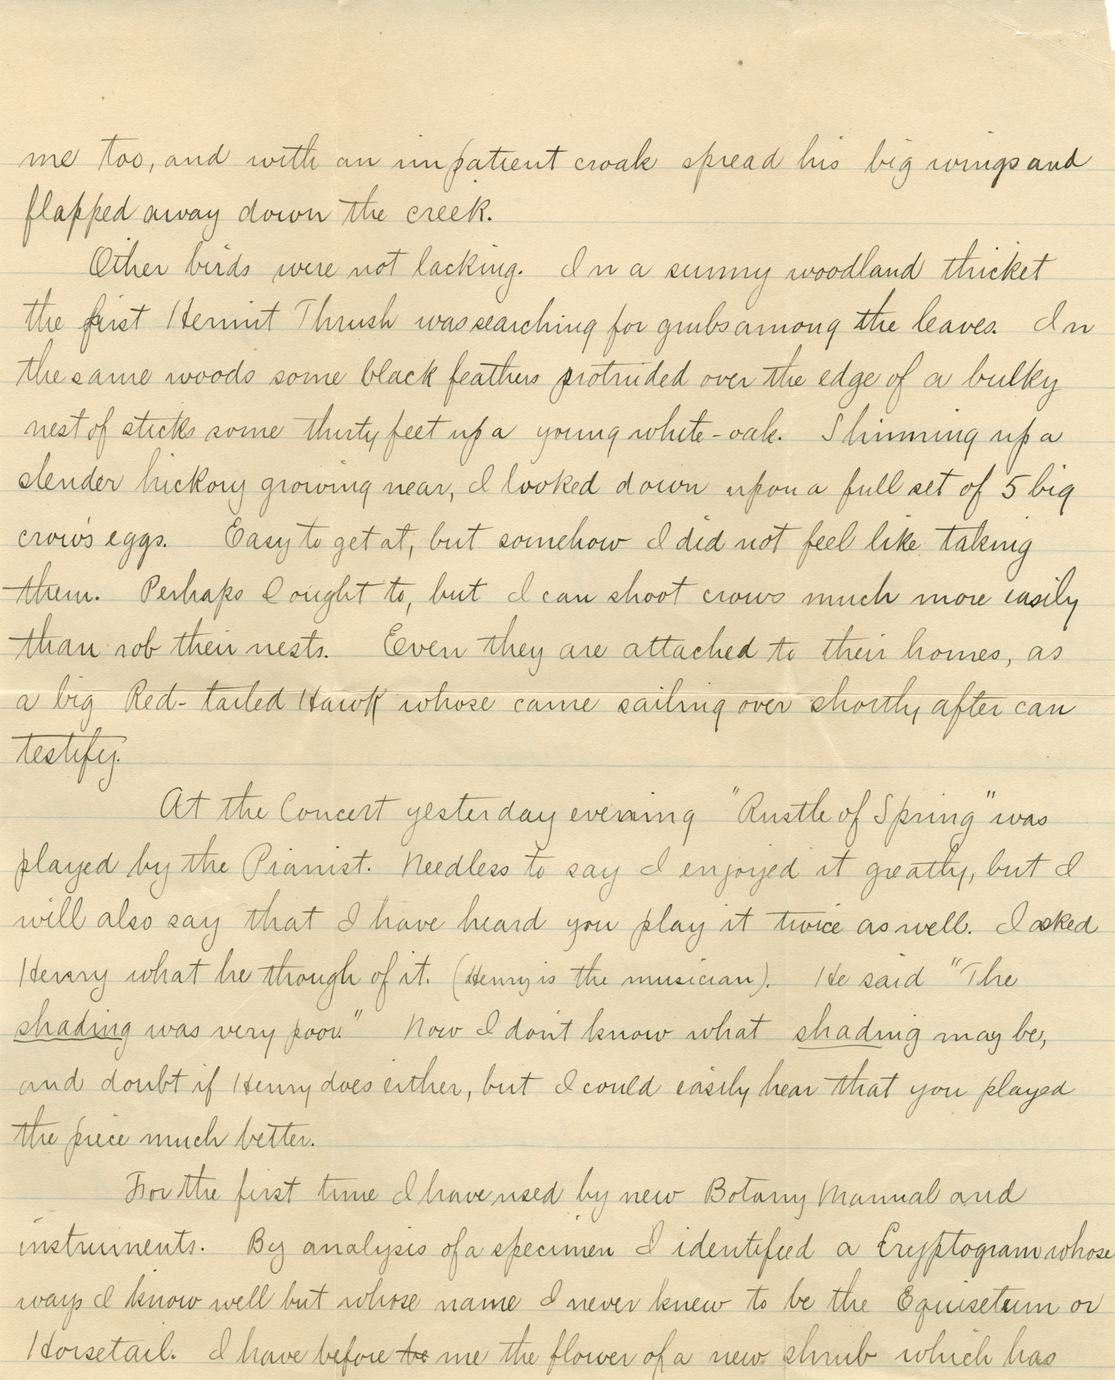 me too, and with an impatient croak spread his big wings and
flapped away down the creek.
Other birds were not lacking. In a sunny woodland thicket
the first Hermit Thrush was searching for grubs among the leaves. In
the same woods some black feathers protruded over the edge of a bulky
nest of sticks some thirty feet up a young white-oak. Shinning up a
slender hickory growing near, I looked down upon a full set of 5 big
crow's eggs. Easy to get at, but somehow I did not feel like taking
them. Perhaps I ought to, but I can shoot crows much more easily
than rob their nests. Even they are attached to their homes, as
a big Red-tailed Hawk whose came sailing over shortly after can
testify.
At the Concert yesterday evening "Rustle of Spring" was
played by the Pianist. Needless to say I enjoyed it greatly, but I
will also say that I have heard you play it twice as well. I asked
Henry what he though of it. (Henry is the musician). He said "The
shading was very poor." Now I don't know what shading may be,
and doubt if Henry does either, but I could easily hear that you played
the piece much better.
For the first time I have used by new Botany Manual and
instruments. By analysis of a specimen I identified a Cryptogram whose
ways I know well but whose name I never knew to be the Equisetum or
Horsetail. I have before to me the flower of a new shrub which has